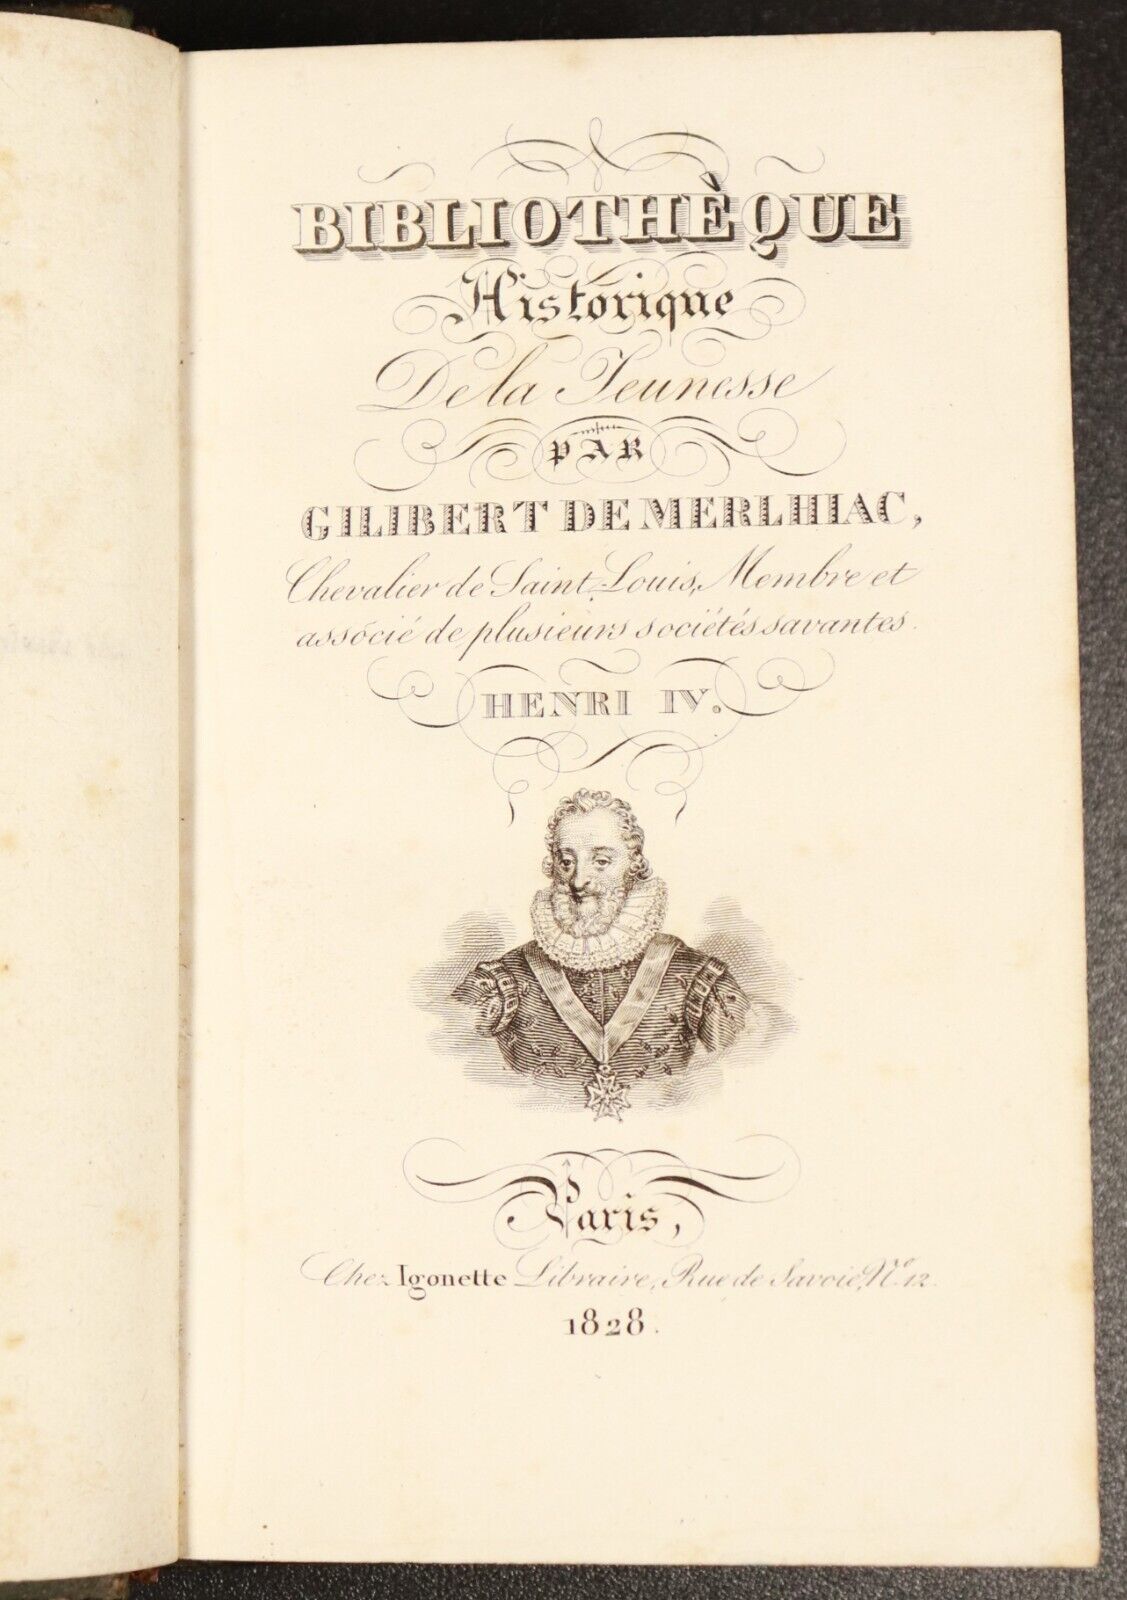 BIBLIOTHÈQUE
Historique
De la Jeunesse
PAR
GILIBERT DE MERLHIAC,
Chevalier de Saint-Louis, Membre et
associé de plusieurs sociétés savantes.
HENRI IV.
Paris,
Chez Igonette Libraire, Rue de Savoie, No. 12.
1828.